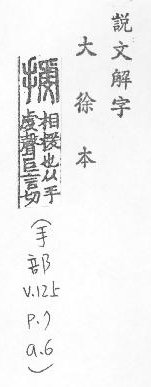 説文解字
大徐本
相援也从手
虔聲巨言切
(手部
v.12上
p.7
a.6)